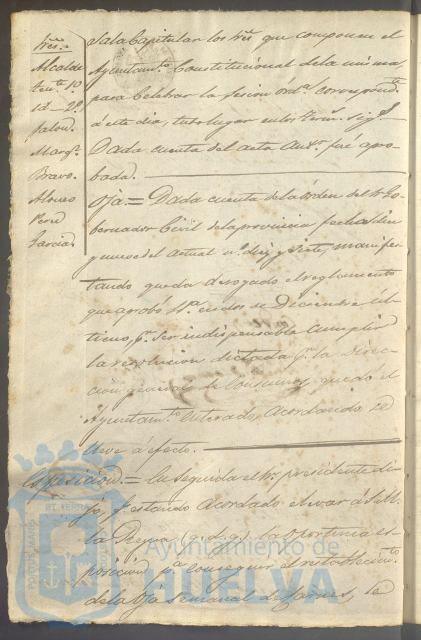 Sres.=
Alcalde
Tente. 1º
id = 2º
Marqz.
Bravo
Alonso
Perez
Garcia
Sala Capitular los Sres. que componen el
Ayuntamto. Constitucional de la misma,
para celebrar la sesion ordª. correspondte.
á este dia, tubo lugar en los termos. sigtes.
Dada cuenta del acta antr. fué apro-
bada.
Oja = Dada cuenta de la órden del Sr. Go-
bernador Civil de la provincia fecha
quince del actual nº. diez y siete, manifes-
tando queda derogado el reglamento
que aprobó en dos de Diciembre ul-
timo, pr. ser indispensable cumplir
la resolucion dictada pr. la Direc-
cion general de Consumos, quedó el
Ayuntamto. enterado, acordando se
lleve á efecto.
Esposicion.= En seguida el Sr. presidente di-
jo, q. estando acordado elevar á S. M.
la Reyna (q. D. g.) la oportuna es-
posicion pª. conseguir el restablecimto.
de la Oja semanal de Carnes, se
AYUNTAMIENTO DE
HUELVA